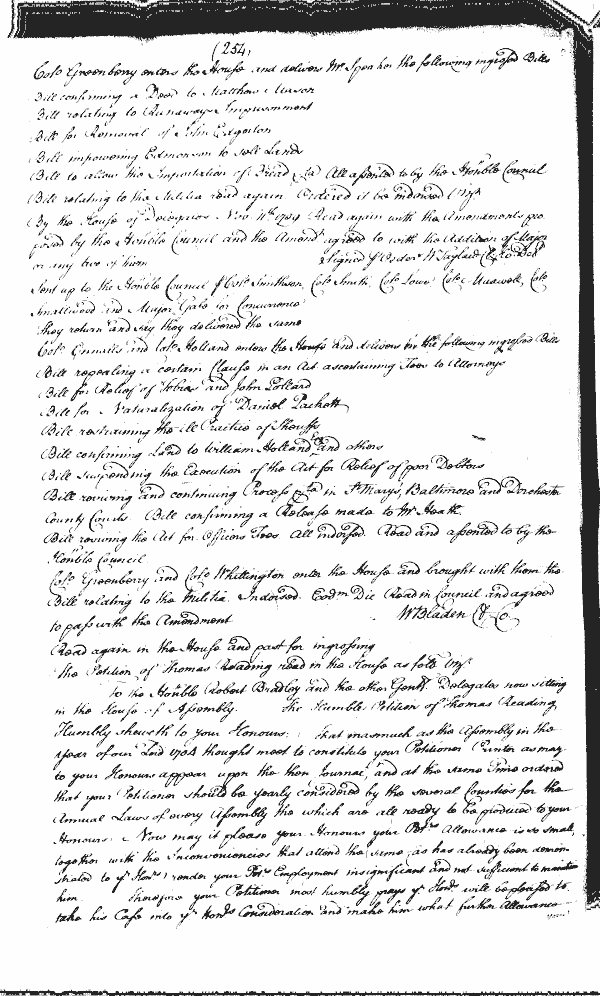 (254)
Colo Greenberry enters the House and delivers Mr Speaker the following ingrossed Bills
Bill confirming a Deed to Matthew Mason
Bill relating to Runaways Imprisonment
Bill for Removal of John Edgerton
Bill impowering Edmonson to sell Land
Bill to allow the Importation of Bread &ca All assented to by the Honble Council
Bill relating to the Militia read again Ordered it be indorsed Vizt
By the House of Delegates Nov 11th 1709 Read again with the Amendments pro
posed by the Honble Council and the Amendt agreed to with the Addition of Major
or any two of them Signed p Order W Taylard Cl Ho Del
Sent up to the Honble Council p Colo Smithson, Colo Smith, Colo Lowe Colo Maxwell, Colo
Smallwood and Major Gale for Concurrence
they return and say they delivered the same
Colo Ennalls and Colo Holland enters the House and delivers in the following ingrossed Bills
Bill repealing a certain Clause in an Act ascertaining Fees to Attorneys
Bill for Relief of Tobias and John Pollard
Bill for Naturalization of Daniel Packett
Bill restraining the ill Practice of Sheriffs
Bill confirming Land to William Holland Esqr and others
Bill suspending the Execution of the Act for Relief of poor Debtors
Bill reviving and continuing Process &ca in St Marys, Baltimore and Dorchester
County Courts. Bill confirming a Release made to Mr Heath
Bill reviving the Act for Officers Fees All indorsed. Read and assented to by the
Honble Council
Colo Greenberry and Colo Whittington enter the House and brought with them the
Bill relating to the Militia Indorsed. Eodm Die Read in Council and agreed
to pass with the Amendment W Bladen Cl Co.
Read again in the House and past for ingrossing
the Petition of Thomas Reading read in the House as folls Vizt
To the Honble Robert Bradley and the other Gentn Delegates now sitting
in the House of Assembly. The Humble Petition of Thomas Reading
Humbly sheweth to your Honours: that inasmuch as the Assembly in the
year of our Lord 1704 thought meet to constitute your Petitioner Printer as may
to your Honours appear upon the then Journal, and at the same Time ordered
that your Petitioner should be yearly considered by the several Counties for the
Annual Laws of every Assembly the which are all ready to be produced to your
Honours. Now may it please your Honours your Petrs Allowance is so small
together with the Inconveniencies that attend the same as has already been demon
strated to yr Honrs render your Petrs Employment insignificant and not sufficient to maintain
him Therefore your Petitioner most humbly prays yr Honrs will be pleased to
take his Case into yr Honrs Consideration and make him what further Allowance